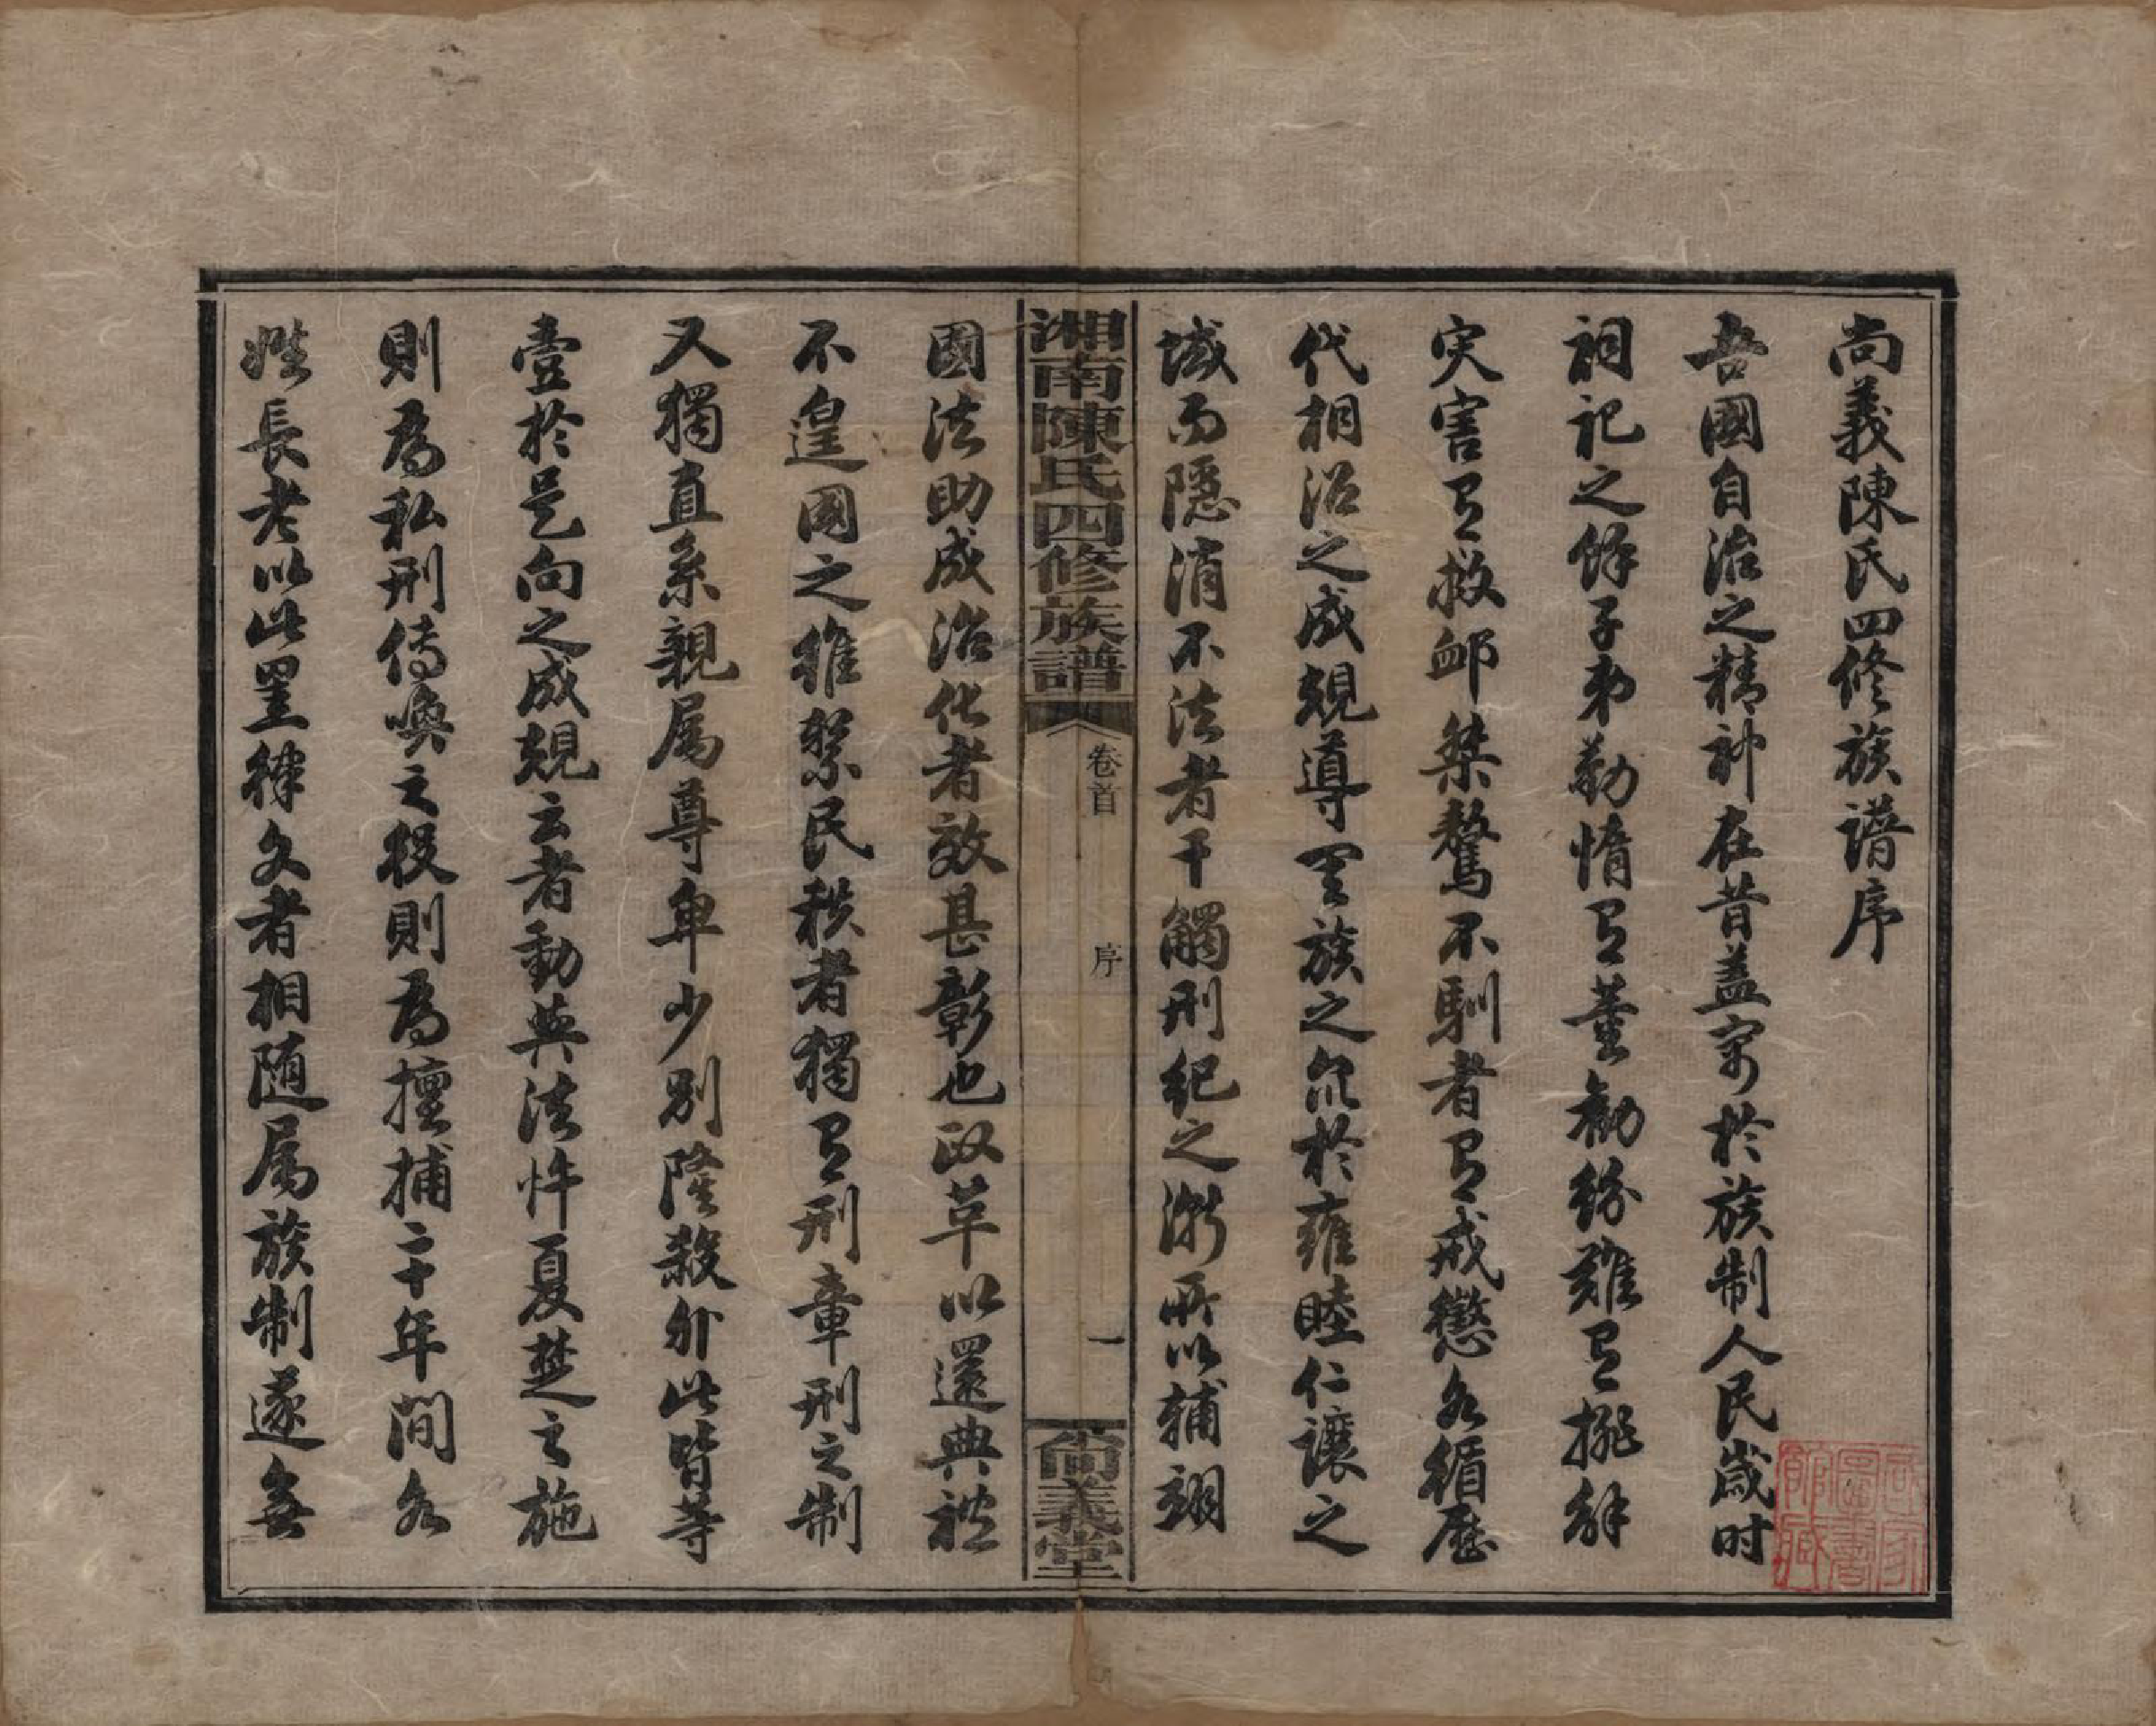 尚義陳氏四修族譜序
吾國自治之精神在昔盖寄於族制人民歲时
祠祀之餘子弟勤惰有董勸紛難有排解
灾害有救卹桀驁不馴者有戒懲各循歷
代相沿之成規導罣族之尔於雍睦仁讓之
域而隱消不法者干觸刑紀之漸所以輔翊
湘南陳氏四修族譜
卷首
序
一
尚義堂
國法助成治化者效甚彰也改革以還典禮
不遑國之維繫民秩者獨有刑章刑之制
又獨直系親属尊卑少別隆殺外此皆等
壹於是向之成規云者動與法忤夏楚之施
則為私刑傳喚之役則為擅捕二十年間各
姓長老以此罣律文者相随属族制遂無
國家圖書館藏